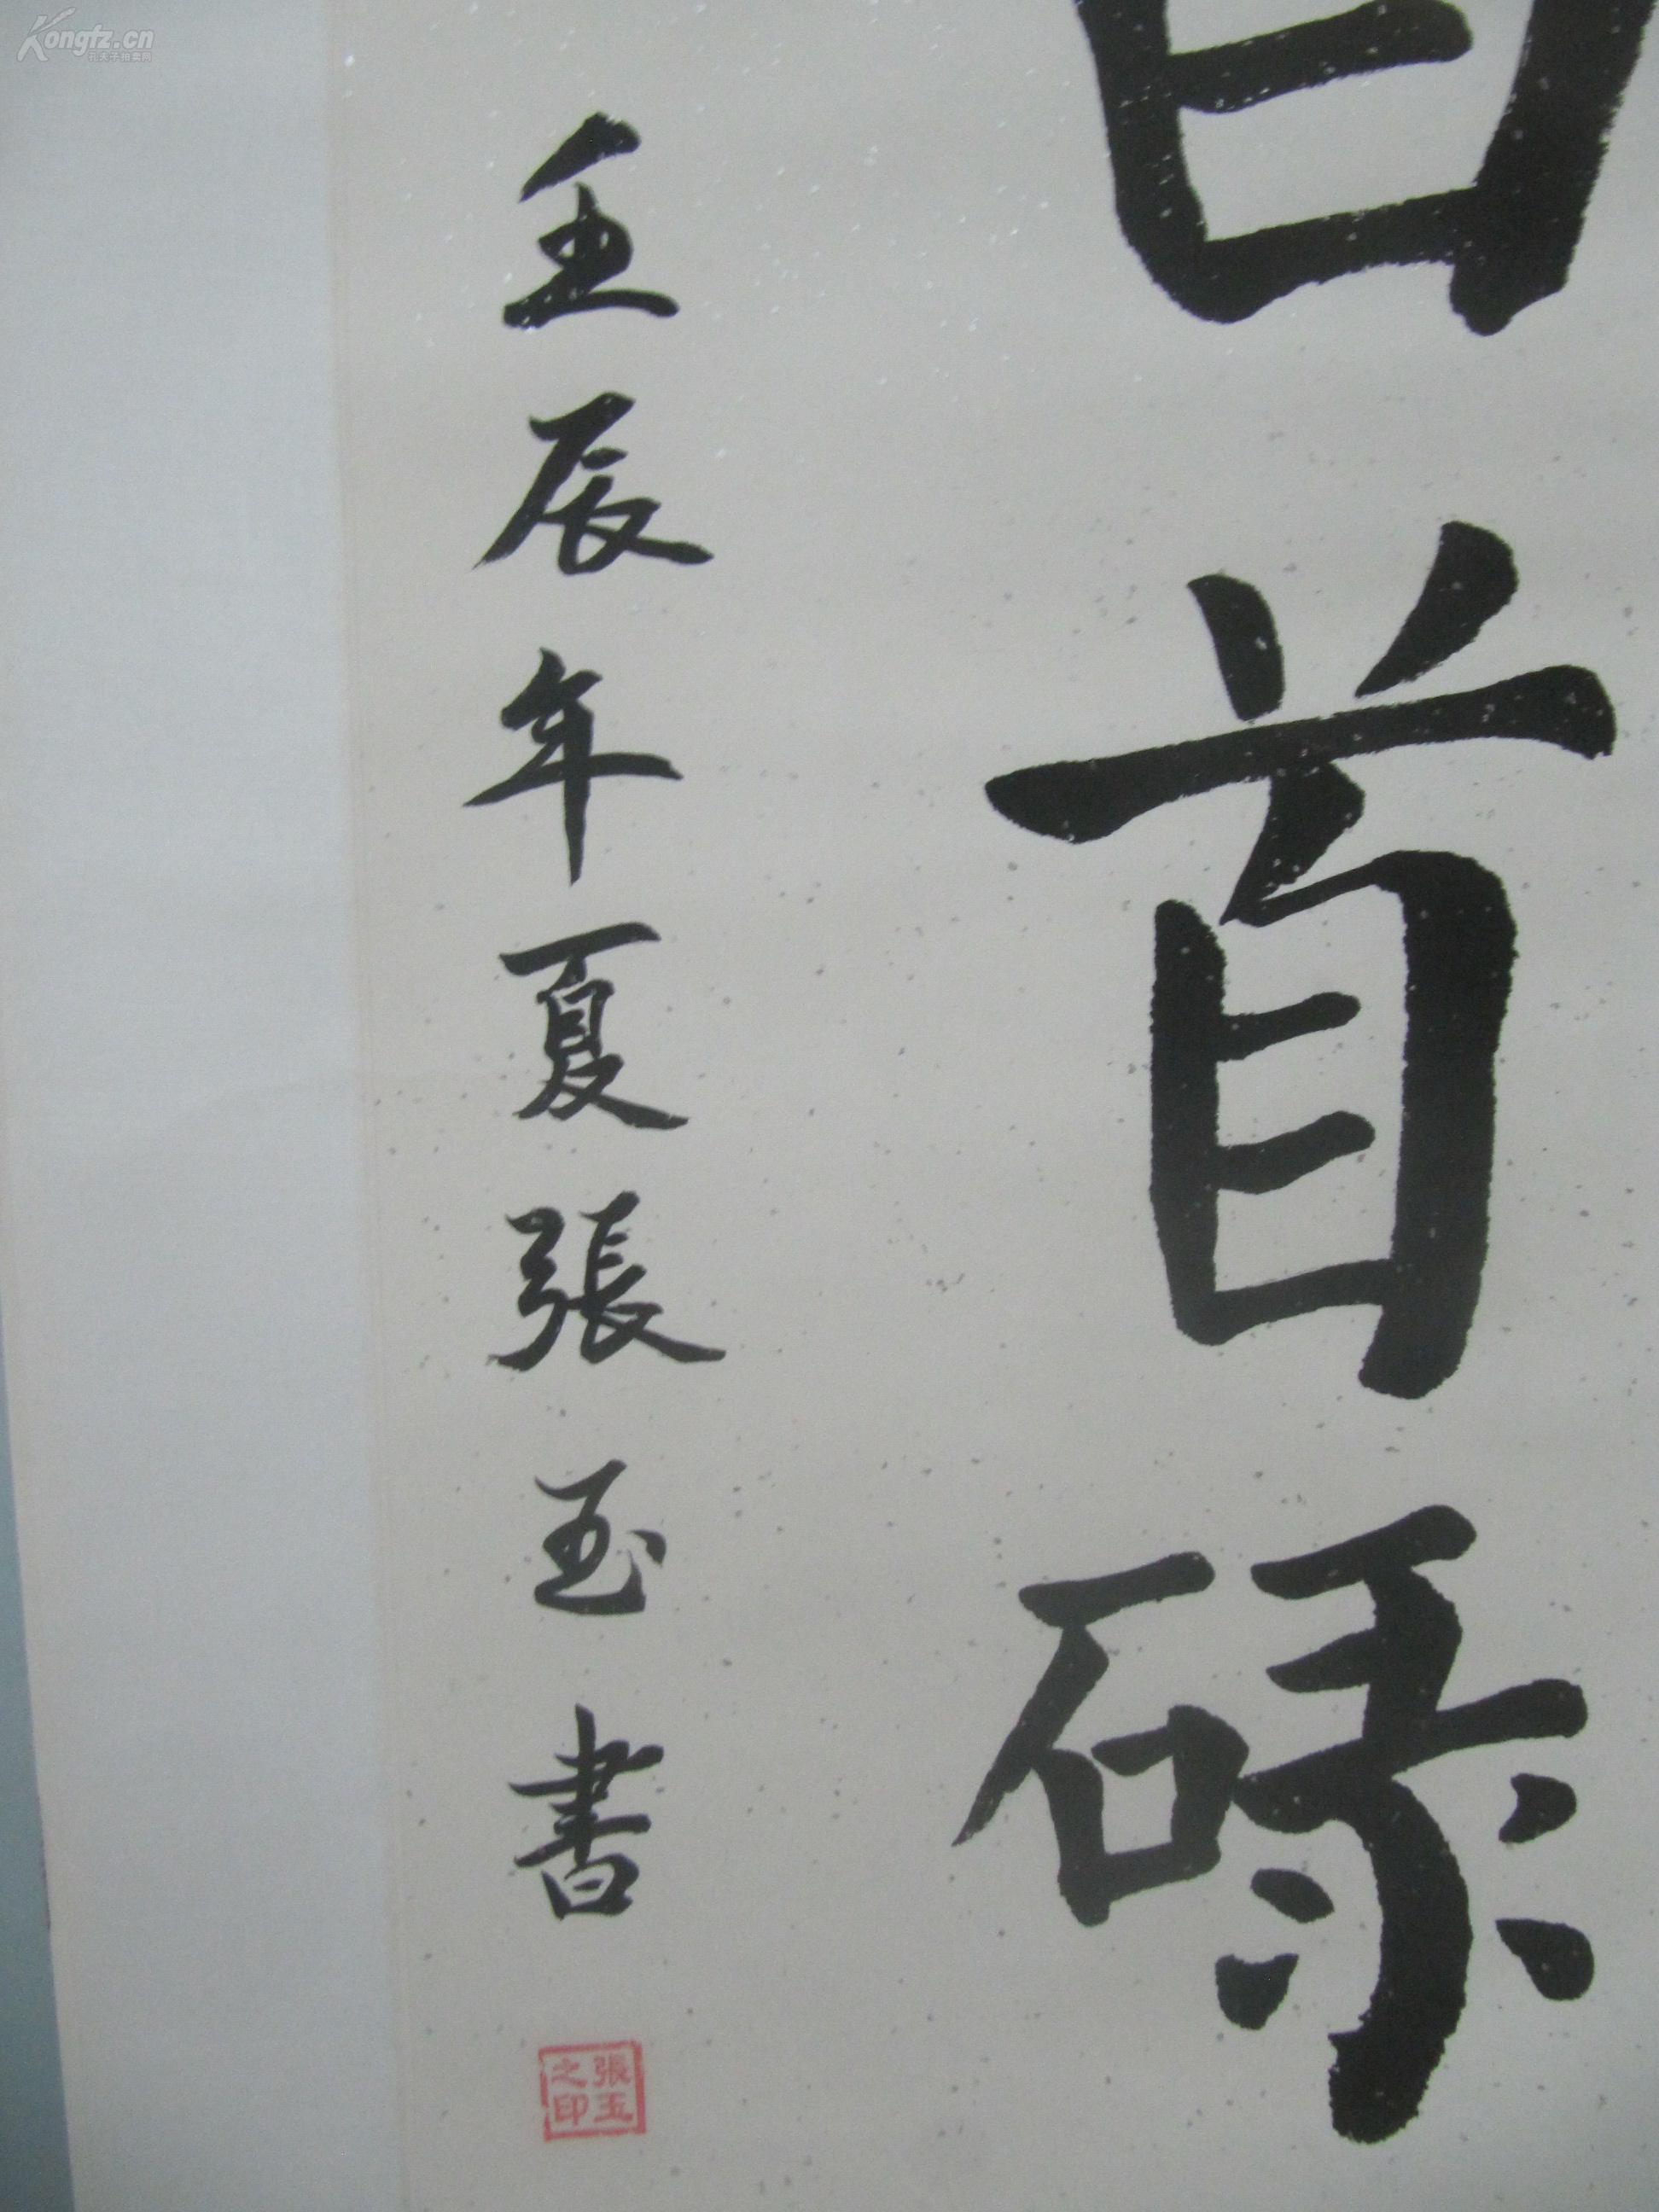 首碌
壬辰年夏張玉書
張玉之印
Kongfz.cn